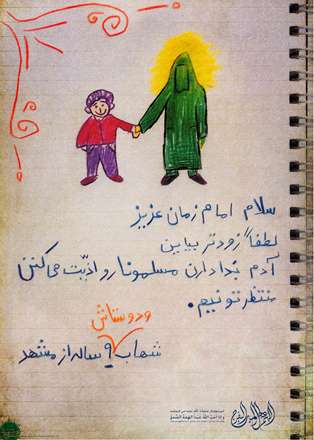 سلام امام زمان عزیز
لطفاً زودتر بیاین
آدم بدا دارن مسلمونا رو اذیت می کنن
منتظرتونیم.
و دوستاش
شهاب ۹ ساله از مشهد